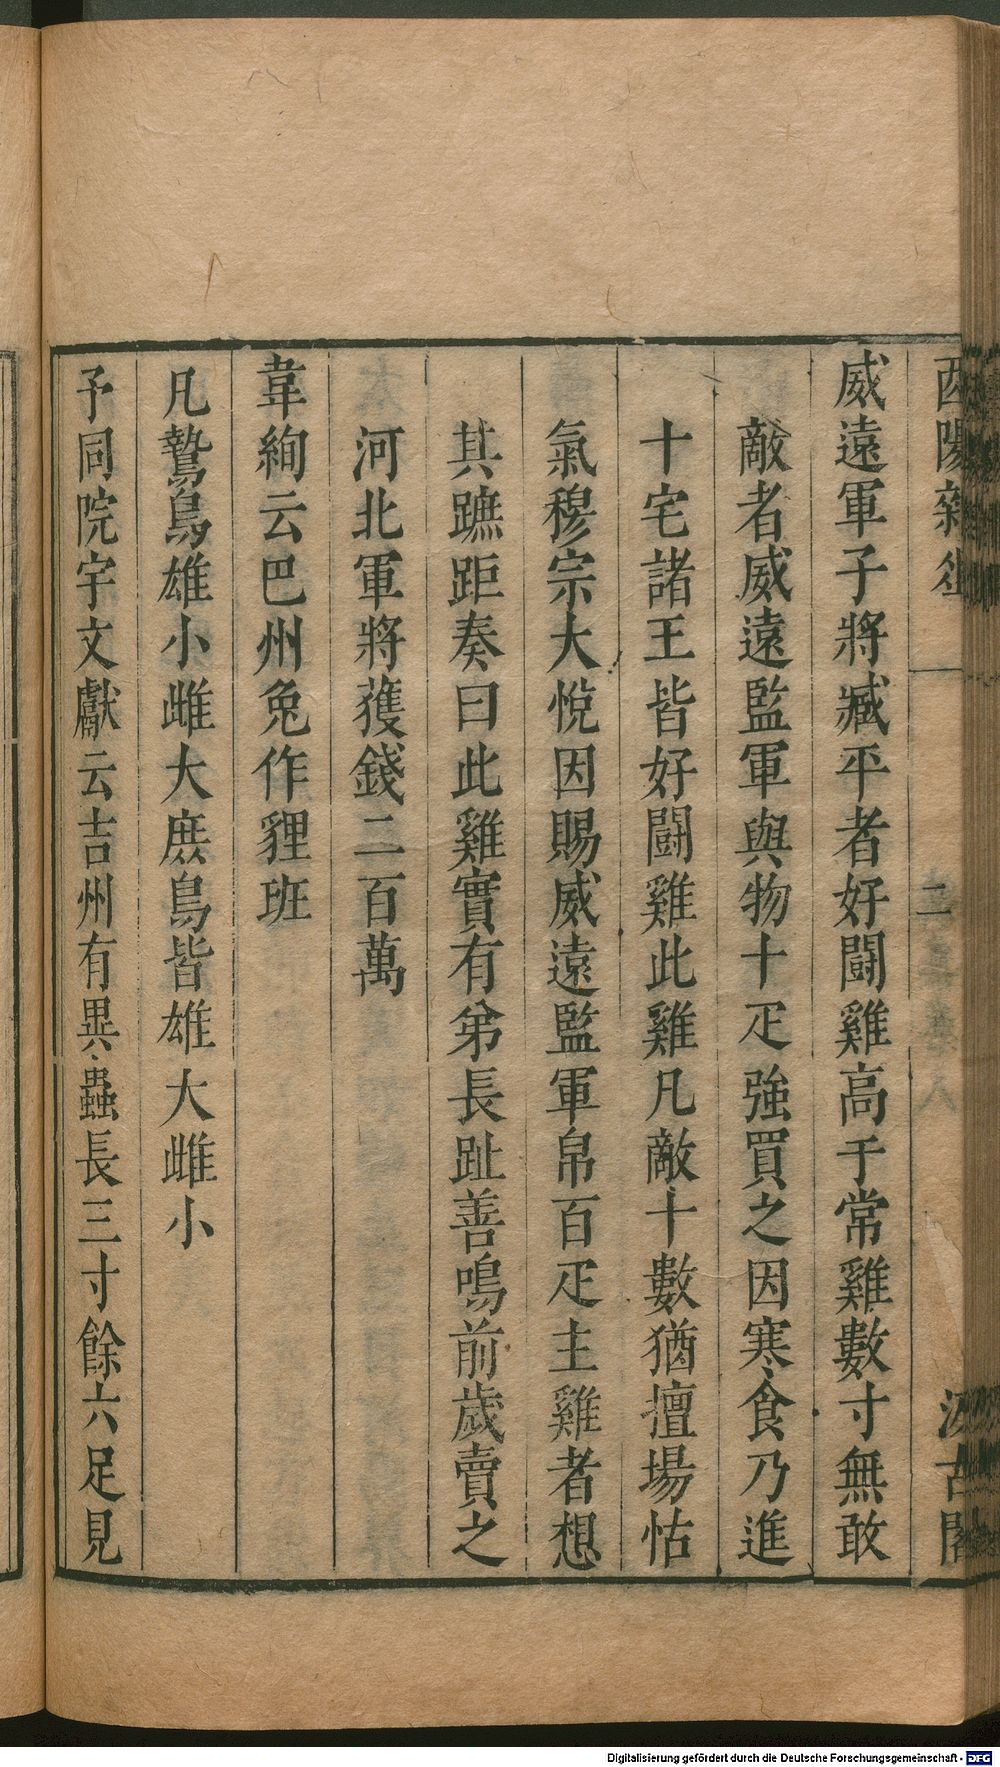 酉陽雜俎
二
汲古閣
威遠軍子將臧平者好鬪雞高于常雞數寸無敢
敵者威遠監軍與物十疋強買之因寒食乃進
十宅諸王皆好鬪雞此雞凡敵十數猶擅場怙
氣穆宗大悅因賜威遠監軍帛百疋主雞者想
其蹠距奏曰此雞實有弟長趾善鳴前歲賣之
河北軍將獲錢二百萬
韋絢云巴州兔作狸班
凡鷙鳥雄小雌大庶鳥皆雄大雌小
予同院宇文獻云吉州有異蟲長三寸餘六足見
Digitalisierung gefördert durch die Deutsche Forschungsgemeinschaft - DFG